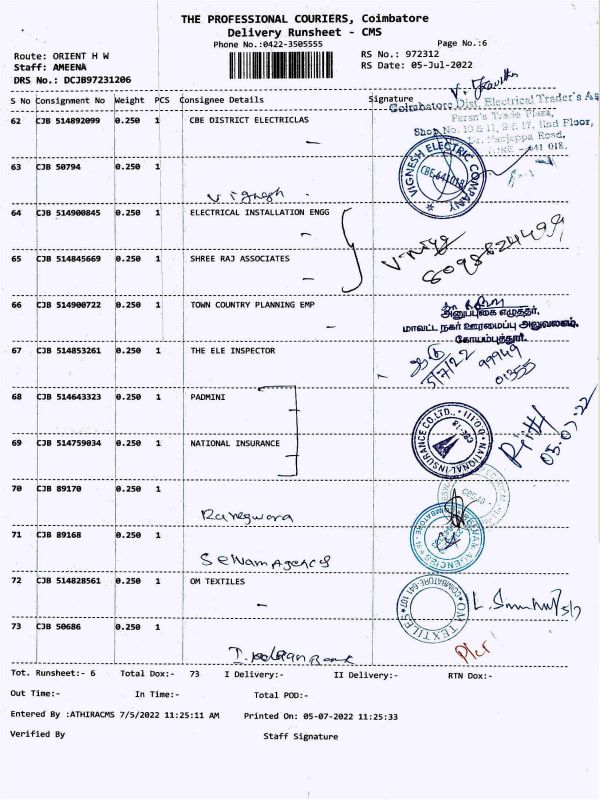 THE PROFESSIONAL COURIERS, Coimbatore
Delivery Runsheet - CMS
Phone No.:0422-3505555
Page No.:6
Route: ORIENT H W
RS No.: 972312
Staff: AMEENA
RS Date: 05-Jul-2022
DRS No.: DCJB97231206
S No Consignment No Weight PCS Consignee Details Signature
Coimbatore Dist. Electrical Trader's As
62 CJB 514892099 0.250 1 CBE DISTRICT ELECTRICLAS
Trade Plaza,
Shop No. 10 & 11, IInd Floor,
Road,
641 018.
63 CJB 50794 0.250 1
Vignesh
VIGNESH ELECTRIC COMPANY
CBE-641018
64 CJB 514900845 0.250 1 ELECTRICAL INSTALLATION ENGG
65 CJB 514845669 0.250 1 SHREE RAJ ASSOCIATES
66 CJB 514900722 0.250 1 TOWN COUNTRY PLANNING EMP
அனுப்புகை எழுத்தர்,
மாவட்ட நகர் ஊரமைப்பு அலுவலகம்,
கோயம்புத்தூர்.
67 CJB 514853261 0.250 1 THE ELE INSPECTOR
5/7/22 99949
01355
68 CJB 514643323 0.250 1 PADMINI
NATIONAL INSURANCE CO. LTD.,
05-07-22
69 CJB 514759034 0.250 1 NATIONAL INSURANCE
70 CJB 89170 0.250 1
71 CJB 89168 0.250 1
Selvam Agency
AGENCIES
COIMBATORE
72 CJB 514828561 0.250 1 OM TEXTILES
OM TEXTILES
COIMBATORE-641 107
73 CJB 50686 0.250 1
Tot. Runsheet:- 6 Total Dox:- 73 I Delivery:- II Delivery:- RTN Dox:-
Out Time:- In Time:- Total POD:-
Entered By :ATHIRACMS 7/5/2022 11:25:11 AM Printed On: 05-07-2022 11:25:33
Verified By Staff Signature